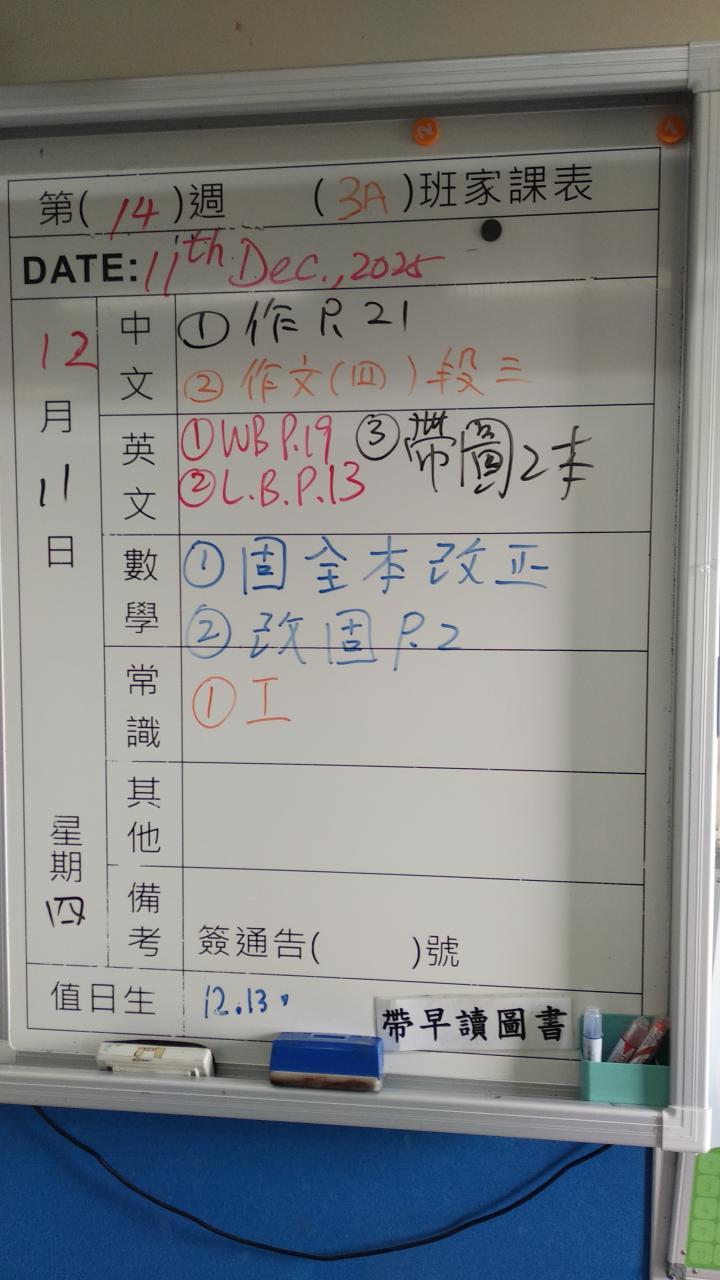 第( 14 )週 ( 3A )班家課表
DATE: 11th Dec., 2025
12月11日
星期四
中文
① 作 P. 21
② 作文(四)段三
英文
① WB P.19 ③ 帶圖2本
② L.B.P.13
數學
① 固全本改正
② 改固 P.2
常識
① 工
其他
備考
簽通告( )號
值日生
12.13.
帶早讀圖書
2
1